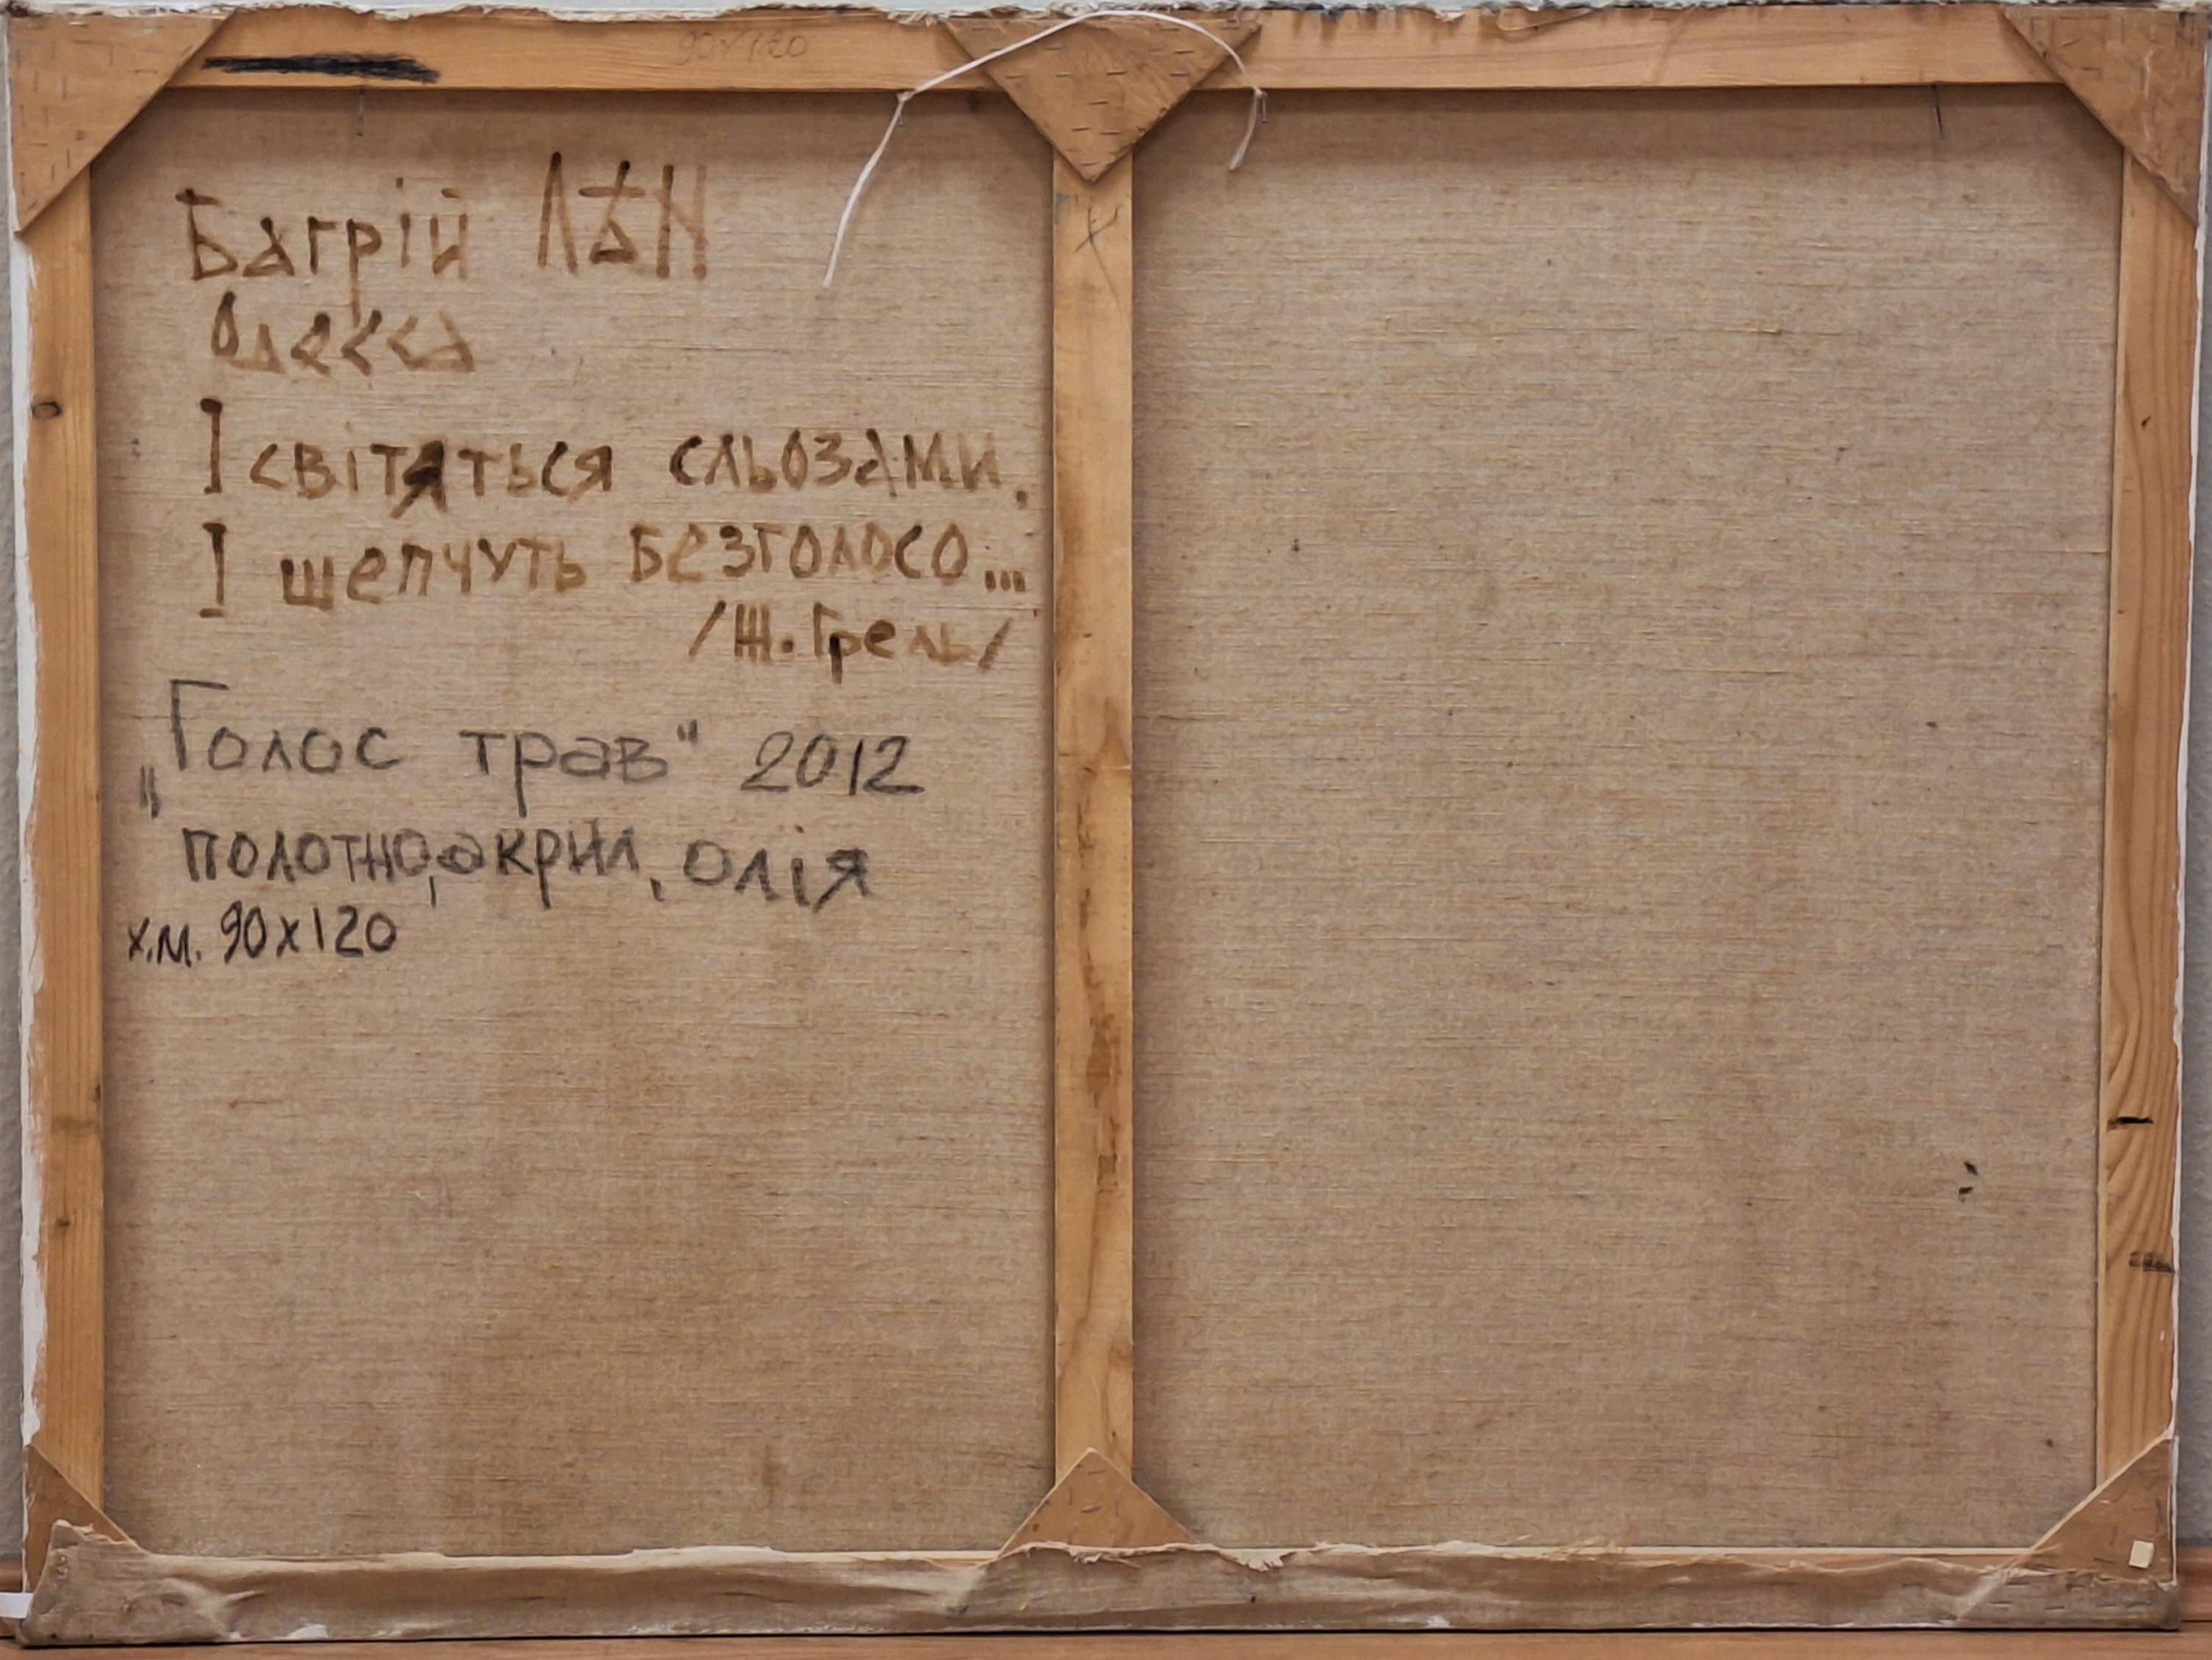 90x120
Багрій ЛѣН
Одесса
І світяться сльозами,
І шепчуть безголосо...
/Ж. Грель/
„Голос трав" 2012
полотно, акрил, олія
х.м. 90х120